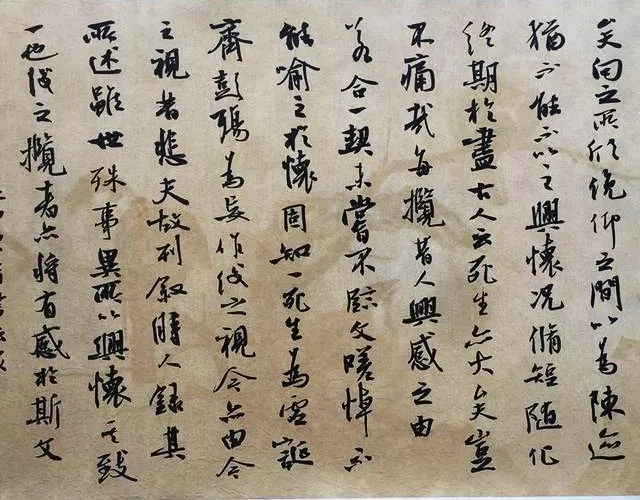 矣向之所欣俛仰之間以為陳迹
猶不能不以之興懷況脩短隨化
終期於盡古人云死生亦大矣豈
不痛哉每攬昔人興感之由
若合一契未嘗不臨文嗟悼不
能喻之於懷固知一死生為虛誕
齊彭殤為妄作後之視今亦由今
之視昔悲夫故列敘時人錄其
所述雖世殊事異所以興懷其致
一也後之攬者亦將有感於斯文